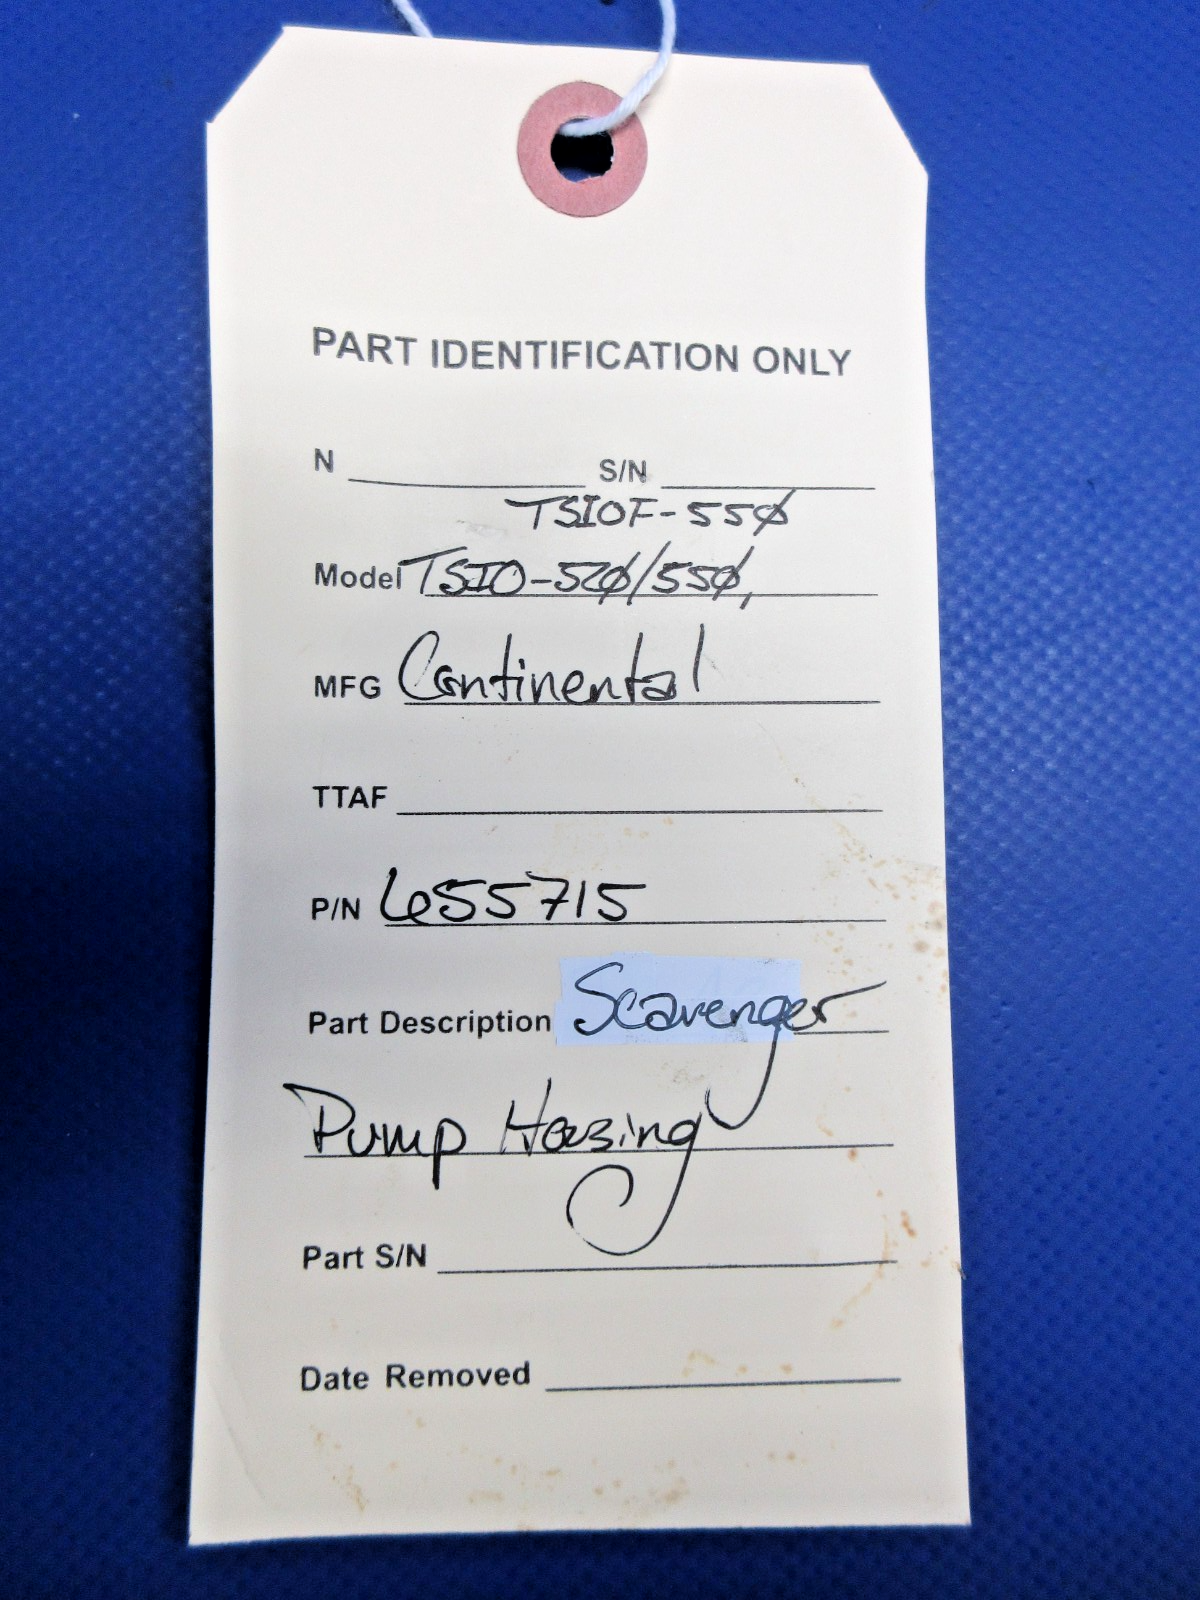 PART IDENTIFICATION ONLY
N S/N
TSIOF-55Ø
Model TSIO-52Ø/55Ø,
MFG Continental
TTAF
P/N 655715
Part Description Scavenger
Pump Housing
Part S/N
Date Removed